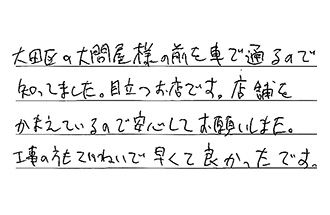 大田区の大問屋様の前を車で通るので
知ってました。目立つお店です。店舗を
かまえているので安心してお願いしました。
工事の方もていねいで早くて良かったです。